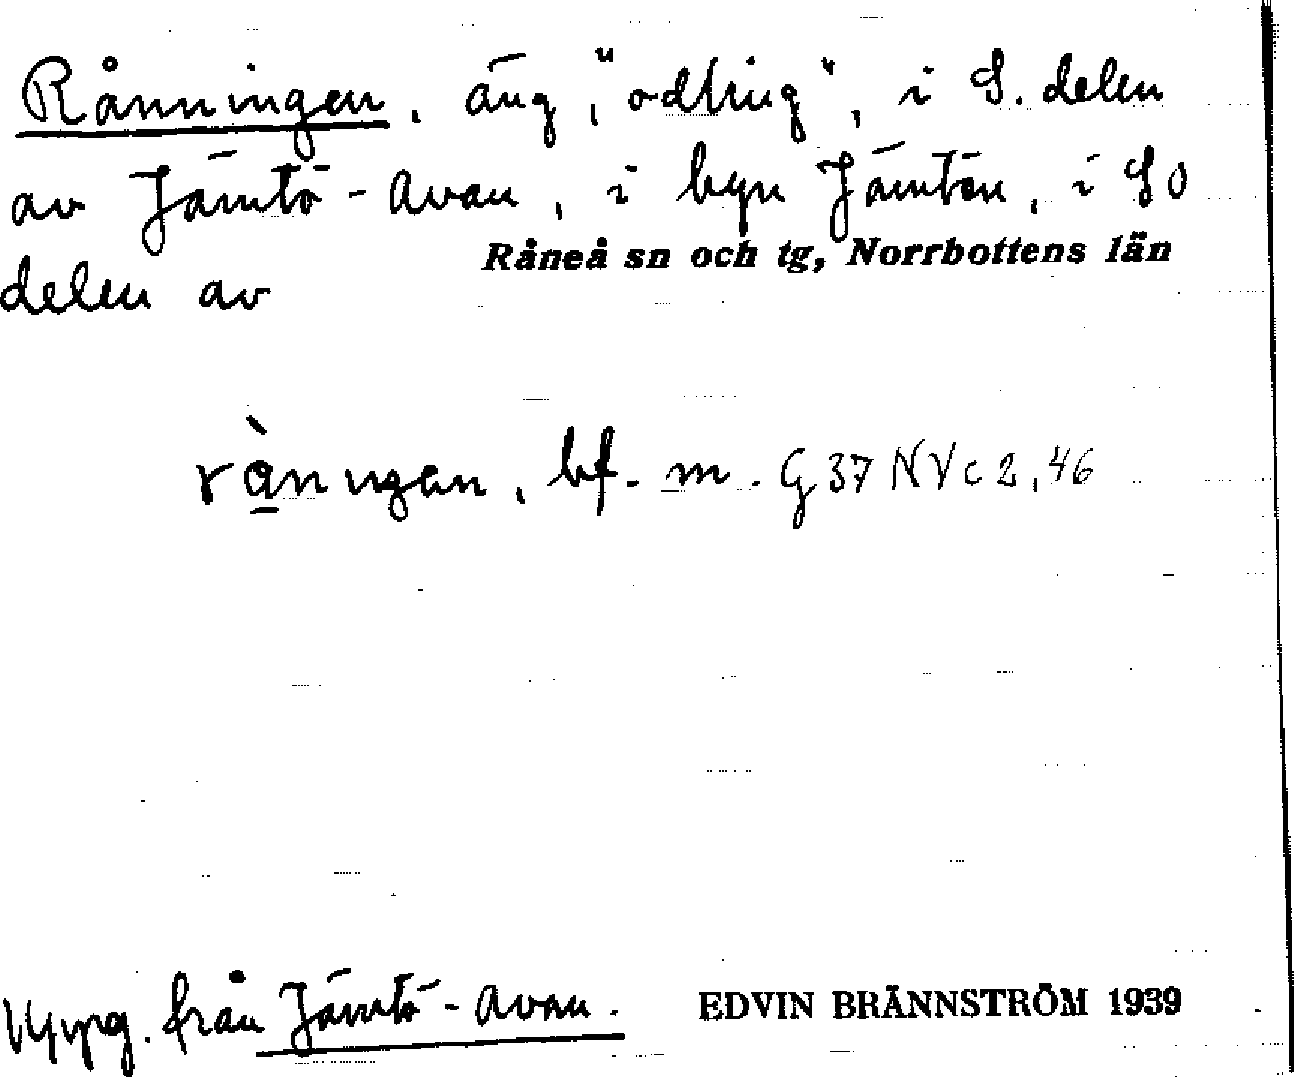 Rånningen, äng, "odling", i S. delen
av Jämtö-Avan, i byn Jämtön, i SO
delen av Råneå sn och tg, Norrbottens län
bf. m. G 37 NV c 2, 46
Uppg. från Jämtö-Avan. EDVIN BRÄNNSTRÖM 1939